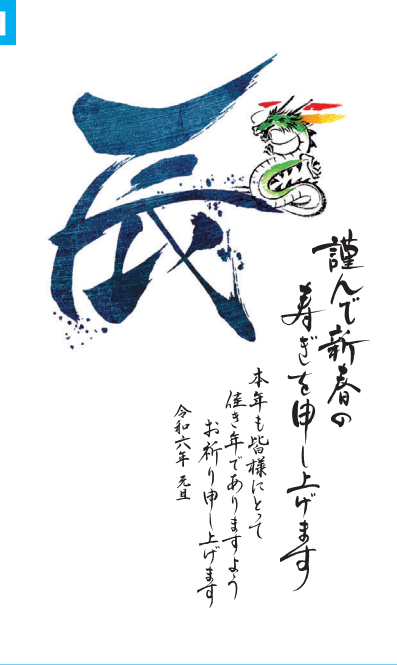 辰
謹んで新春の
寿ぎを申し上げます
本年も皆様にとって
佳き年でありますよう
お祈り申し上げます
令和六年 元旦